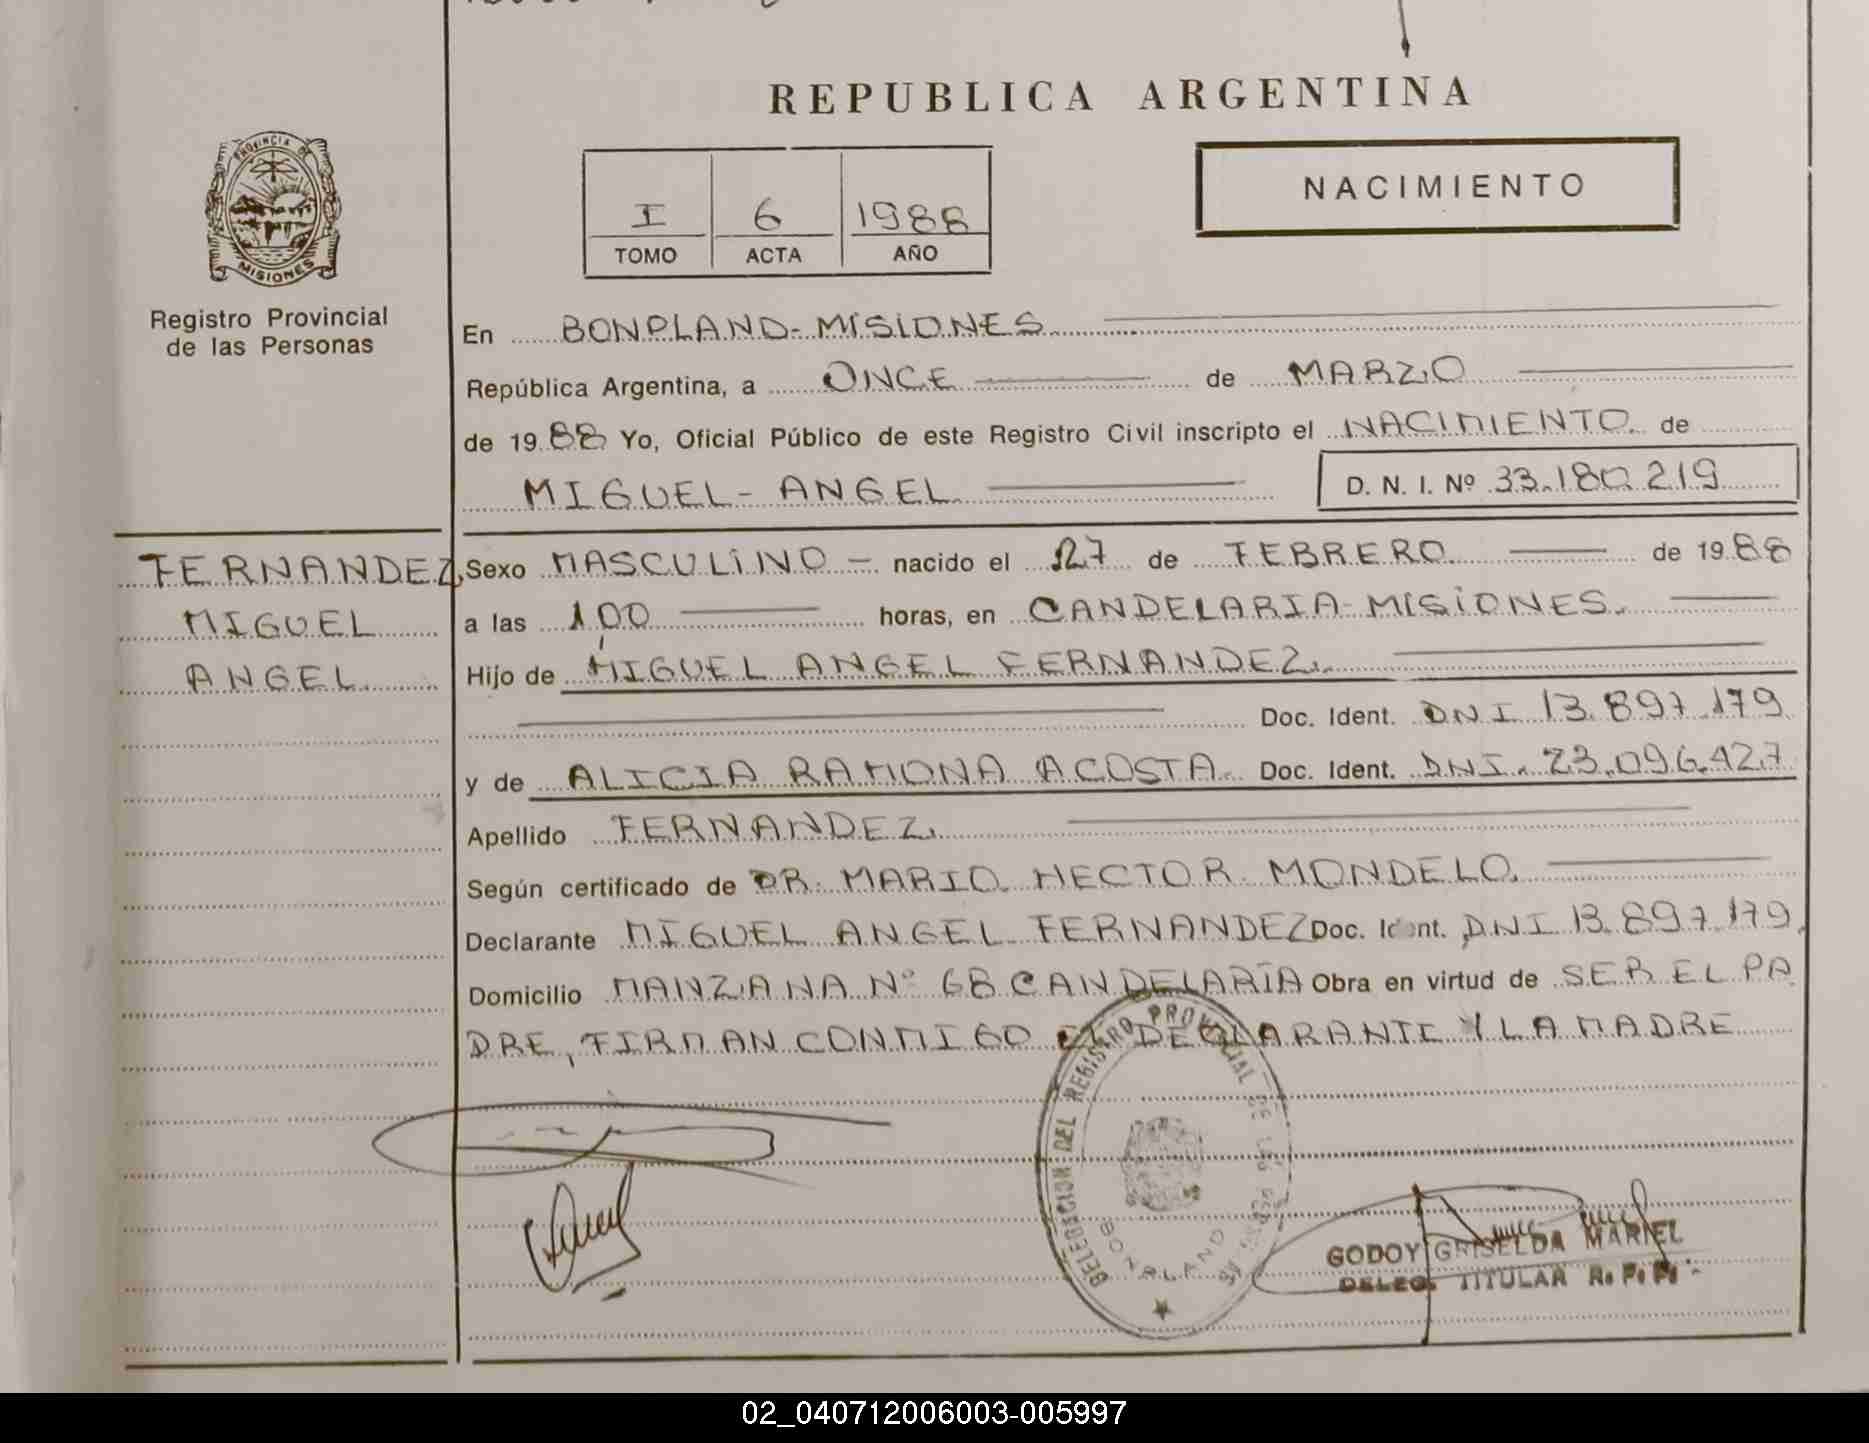 REPUBLICA ARGENTINA
PROVINCIA DE
MISIONES
Registro Provincial
de las Personas
I 6 1988
TOMO ACTA AÑO
NACIMIENTO
En BONPLAND-MISIONES
República Argentina, a ONCE de MARZO
de 1988 Yo, Oficial Público de este Registro Civil inscripto el NACIMIENTO de
MIGUEL-ANGEL D. N. I. Nº 33.180.219
FERNANDEZ,
MIGUEL
ANGEL
Sexo MASCULINO - nacido el 27 de FEBRERO de 1988
a las 1,00 horas, en CANDELARIA-MISIONES.
Hijo de MIGUEL ANGEL FERNANDEZ.
Doc. Ident. DNI 13.897.179
y de ALICIA RAMONA ACOSTA. Doc. Ident. DNI. 23.096.427
Apellido FERNANDEZ.
Según certificado de DR. MARIO HECTOR MONDELO.
Declarante MIGUEL ANGEL FERNANDEZ Doc. Ident. DNI 13.897.179,
Domicilio MANZANA Nº 68 CANDELARIA Obra en virtud de SER EL PA
DRE, FIRMAN CONMIGO EL DECLARANTE Y LA MADRE
DELEGACION DEL REGISTRO PROVINCIAL DE LAS PERSONAS
BONPLAND
GODOY GRISELDA MARIEL
DELEG. TITULAR R. P. P.
02_040712006003-005997